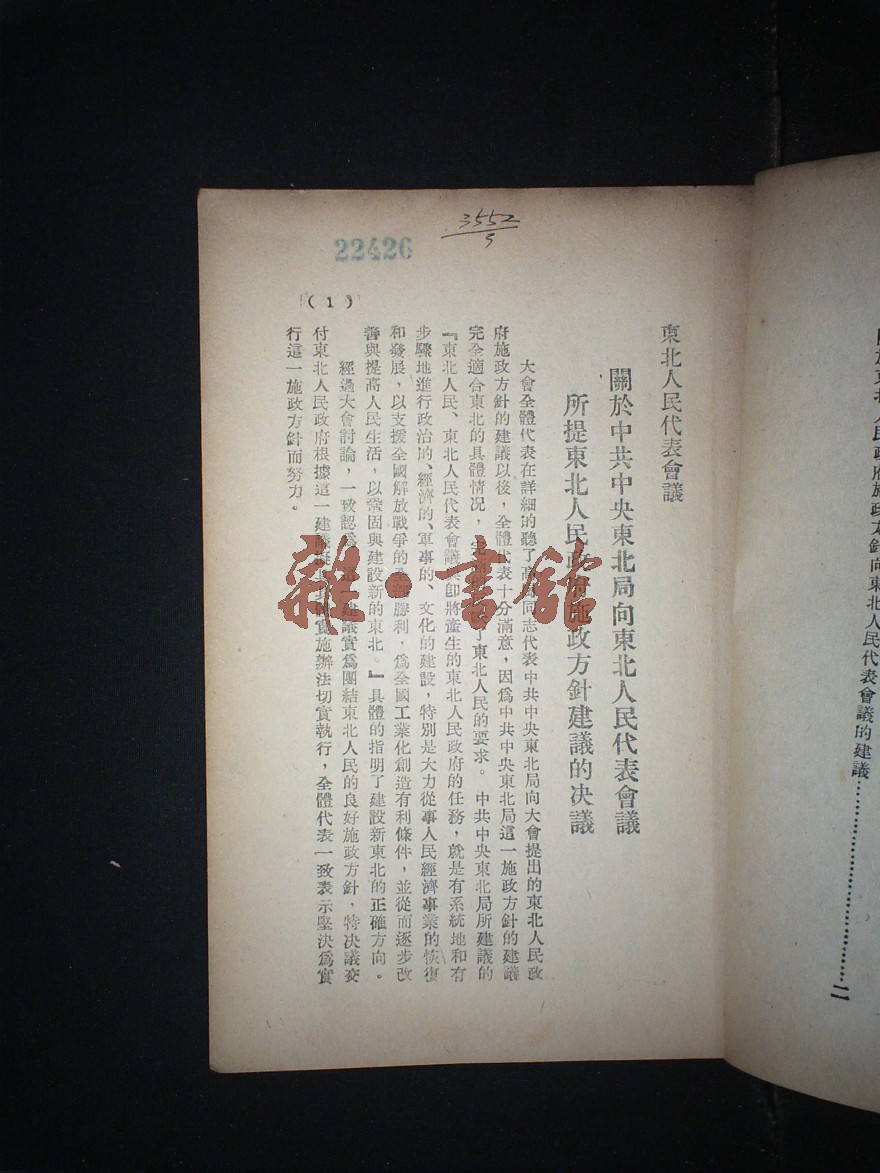 3552
5
22426
(1)
東北人民代表會議
關於中共中央東北局向東北人民代表會議
所提東北人民政府施政方針建議的決議
大會全體代表在詳細的聽了高同志代表中共中央東北局向大會提出的東北人民政
府施政方針的建議以後，全體代表十分滿意，因爲中共中央東北局這一施政方針的建議
完全適合東北的具體情况，完了東北人民的要求。中共中央東北局所建議的
『東北人民、東北人民代表會議與即將產生的東北人民政府的任務，就是有系統地和有
步驟地進行政治的、經濟的、軍事的、文化的建設，特別是大力從事人民經濟事業的恢復
和發展，以支援全國解放戰爭的勝利，爲全國工業化創造有利條件，並從而逐步改
善與提高人民生活，以鞏固與建設新的東北。』具體的指明了建設新東北的正確方向。
經過大會討論，一致認爲建議實爲團結東北人民的良好施政方針，特決議交
付東北人民政府根據這一建議實施辦法切實執行，全體代表一致表示堅決爲實
行這一施政方針而努力。
東北人民政府施政方針向東北人民代表會議的建議……………………二
雜·書館